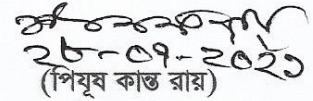 ২৮-০৭-২০২১
(পিযূষ কান্ত রায়)